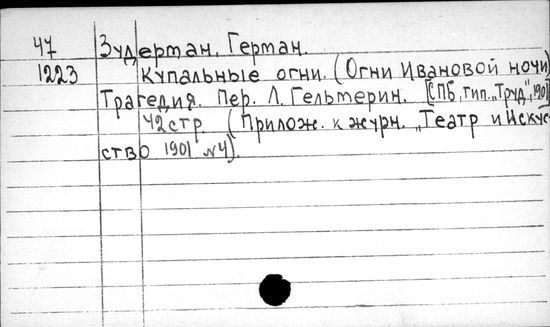 47 Зудерман, Герман.
1223 Купальные огни. (Огни Ивановой ночи)
Трагедия. Пер. Л. Гельмерин. [СПБ, тип. „Труд", 1901]
42 стр. (Прилож. к журн. „Театр и Искус-
ство 1901 №4).